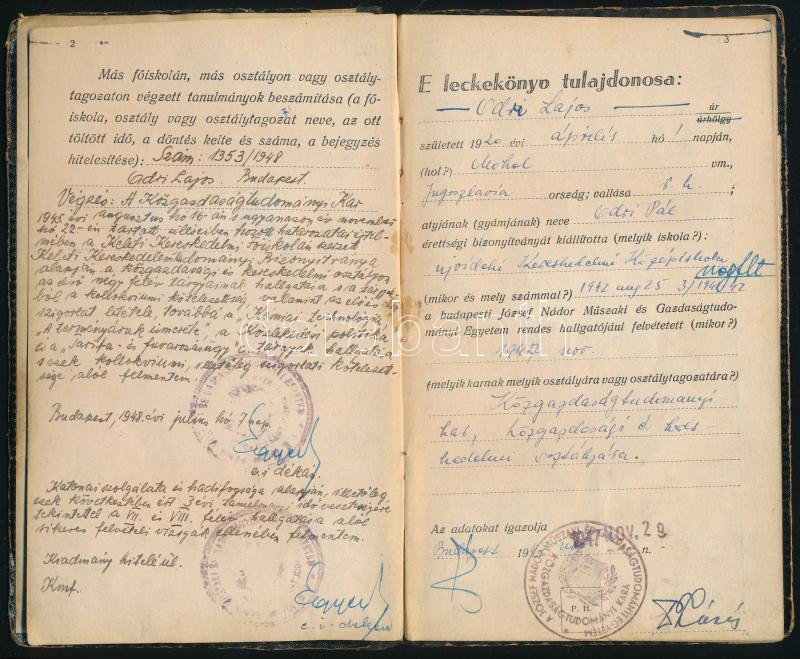 2
Más főiskolán, más osztályon vagy osztály-
tagozaton végzett tanulmányok beszámítása (a fő-
iskola, osztály vagy osztálytagozat neve, az ott
töltött idő, a döntés kelte és száma, a bejegyzés
hitelesítése): Szám: 1353/1948
Odri Lajos Budapest.
Végzés: A Közgazdaságtudományi Kar
1945 évi augusztus hó 16-án s ugyanazon év november
hó 22-én tartott ülésében hozott határozatai értel-
mében a Keleti Kereskedelmi Főiskolán szerzett
Keleti Kereskedelemtudományi Bizonyítványa
alapján a közgazdasági és kereskedelmi osztályon
az első négy félév tárgyainak hallgatása s a tárgyak-
ból a kollokviumi kötelezettség, valamint az első
szigorlat letétele, továbbá a "Kémiai technológia",
"A termény áruk ismerete", a "Közlekedési politika
és a "Tarifa- és fuvarozásügy" c. tárgyak hallgatása
s ezek kollokviumi, illetőleg szigorlati kötelezett-
sége alól felmentem.
Budapest, 1948. évi július hó 7 nap.
e. i. dékán
Katonai szolgálata és hadifogsága alapján, illetőleg
ezek következtében ért 3 évi tanulmányi idő veszteségére
tekintettel a VII. és VIII. félév hallgatása alól
sikeres felvételi vizsgák ellenében felmentem.
Kiadmány hiteléül.
Kmf.
e. i. dékán
3
E leckekönyv tulajdonosa:
Odri Lajos úr
úrhölgy
született 1920 évi április hó 1 napján,
(hol?) Mohol vm.,
Jugoszlávia ország; vallása r. k. ;
atyjának (gyámjának) neve Odri Pál
érettségi bizonyítványát kiállította (melyik iskola?):
ujvidéki Kereskedelmi Középiskola
(mikor és mely számmal?) 1942 aug 25 3/1941-42
a budapesti József Nádor Műszaki és Gazdaságtudo-
mányi Egyetem rendes hallgatójául felvétetett (mikor?)
1947 nov.
(melyik karnak melyik osztályára vagy osztálytagozatára?)
Közgazdaságtudományi
kar, közgazdasági és keres-
kedelmi osztályára.
Az adatokat igazolja
Budapest 1947 NOV. 29 n.
P. H.
A JÓZSEF NÁDOR MŰSZAKI ÉS GAZDASÁGTUDOMÁNYI EGYETEM
KÖZGAZDASÁGTUDOMÁNYI KARA
darabanth